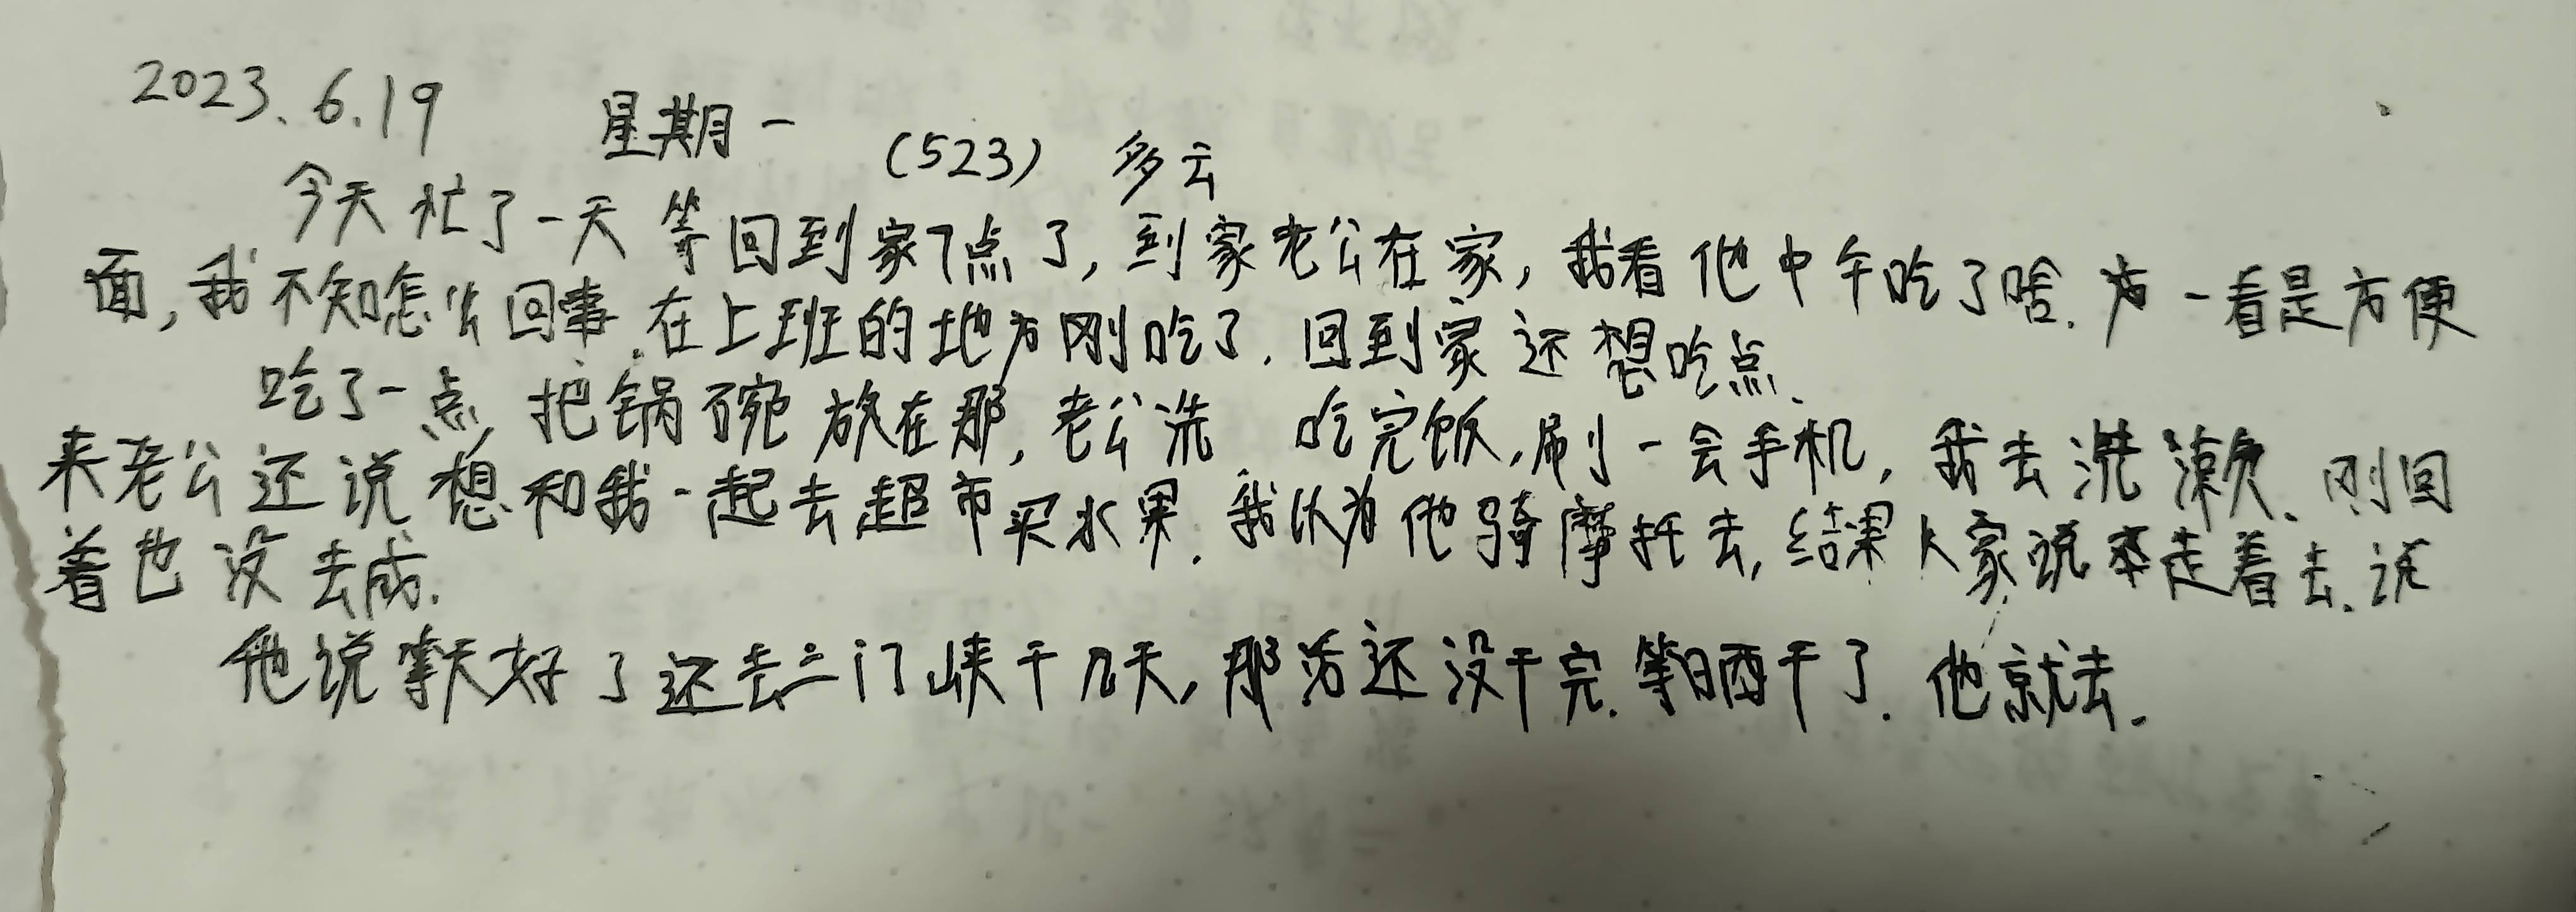 2023.6.19 星期一 (523) 多云
今天忙了一天 等回到家7点了,到家老公在家,我看他中午吃了啥. 一看是方便
面,我不知怎么回事.在上班的地方刚吃了.回到家还想吃点.
吃了一点,把锅碗放在那,老公洗 吃完饭,刷一会手机,我去洗漱、刚回
来老公还说想和我一起去超市买水果.我认为他骑摩托去,结果人家说走着去.说
着也没去成.
他说等天好了还去三门峡干几天,那活还没干完.等晒干了.他就去.